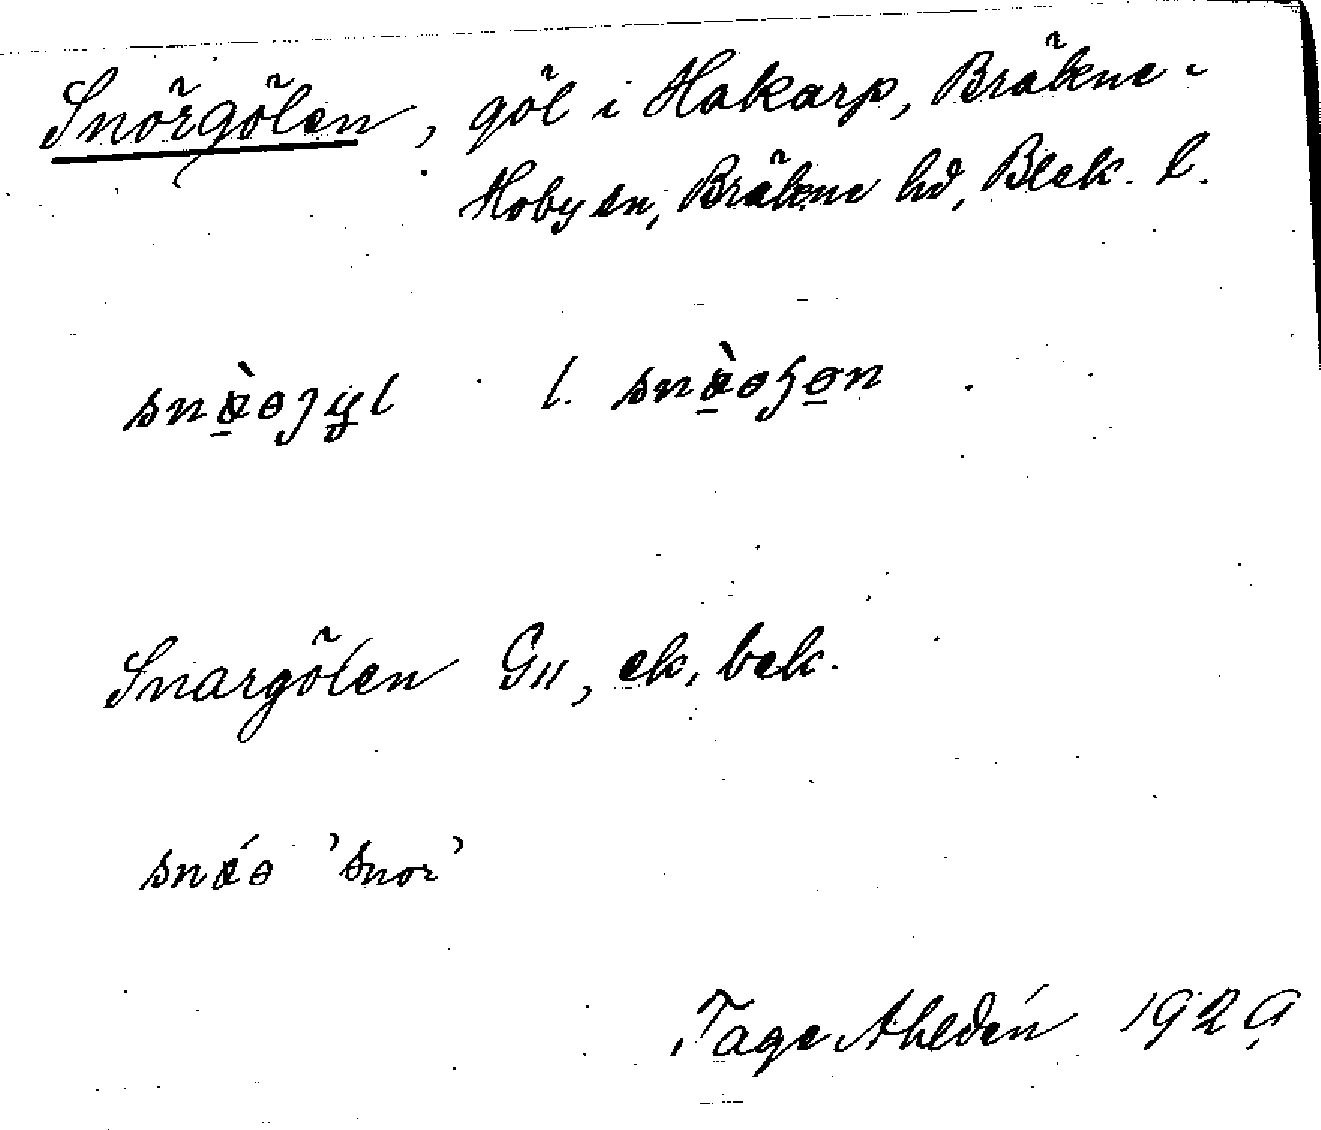 Snörgölen, göl i Hakarp, Bräkne-
Hoby sn, Bräkne hd, Blek. l.
l.
Snargölen G11, ek, bek.
'snor'
Tage Ahldén 1929